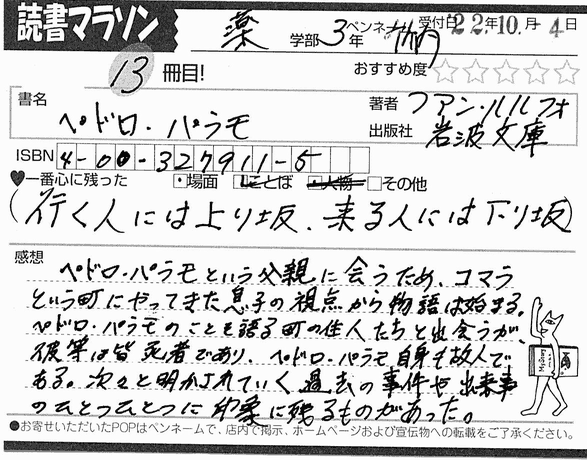 読書マラソン
薬 学部 3年 ペンネーム 受付日 22年10月4日
13 冊目! おすすめ度 ☆☆☆☆☆
書名 ペドロ・パラモ
著者 フアン・ルルフォ
出版社 岩波文庫
ISBN 4-00-327911-5
♥一番心に残った □・場面 □ことば □・人物 □その他
(行く人には上り坂、来る人には下り坂)
感想
ペドロ・パラモという父親に会うため、コマラ
という町にやってきた息子の視点から物語は始まる。
ペドロ・パラモのことを語る町の住人たちと出会うが、
彼等は皆死者であり、ペドロ・パラモ自身も故人で
ある。次々と明かされていく過去の事件や出来事
のひとつひとつに印象に残るものがあった。
●お寄せいただいたPOPはペンネームで、店内で掲示、ホームページおよび宣伝物への転載をご了承ください。